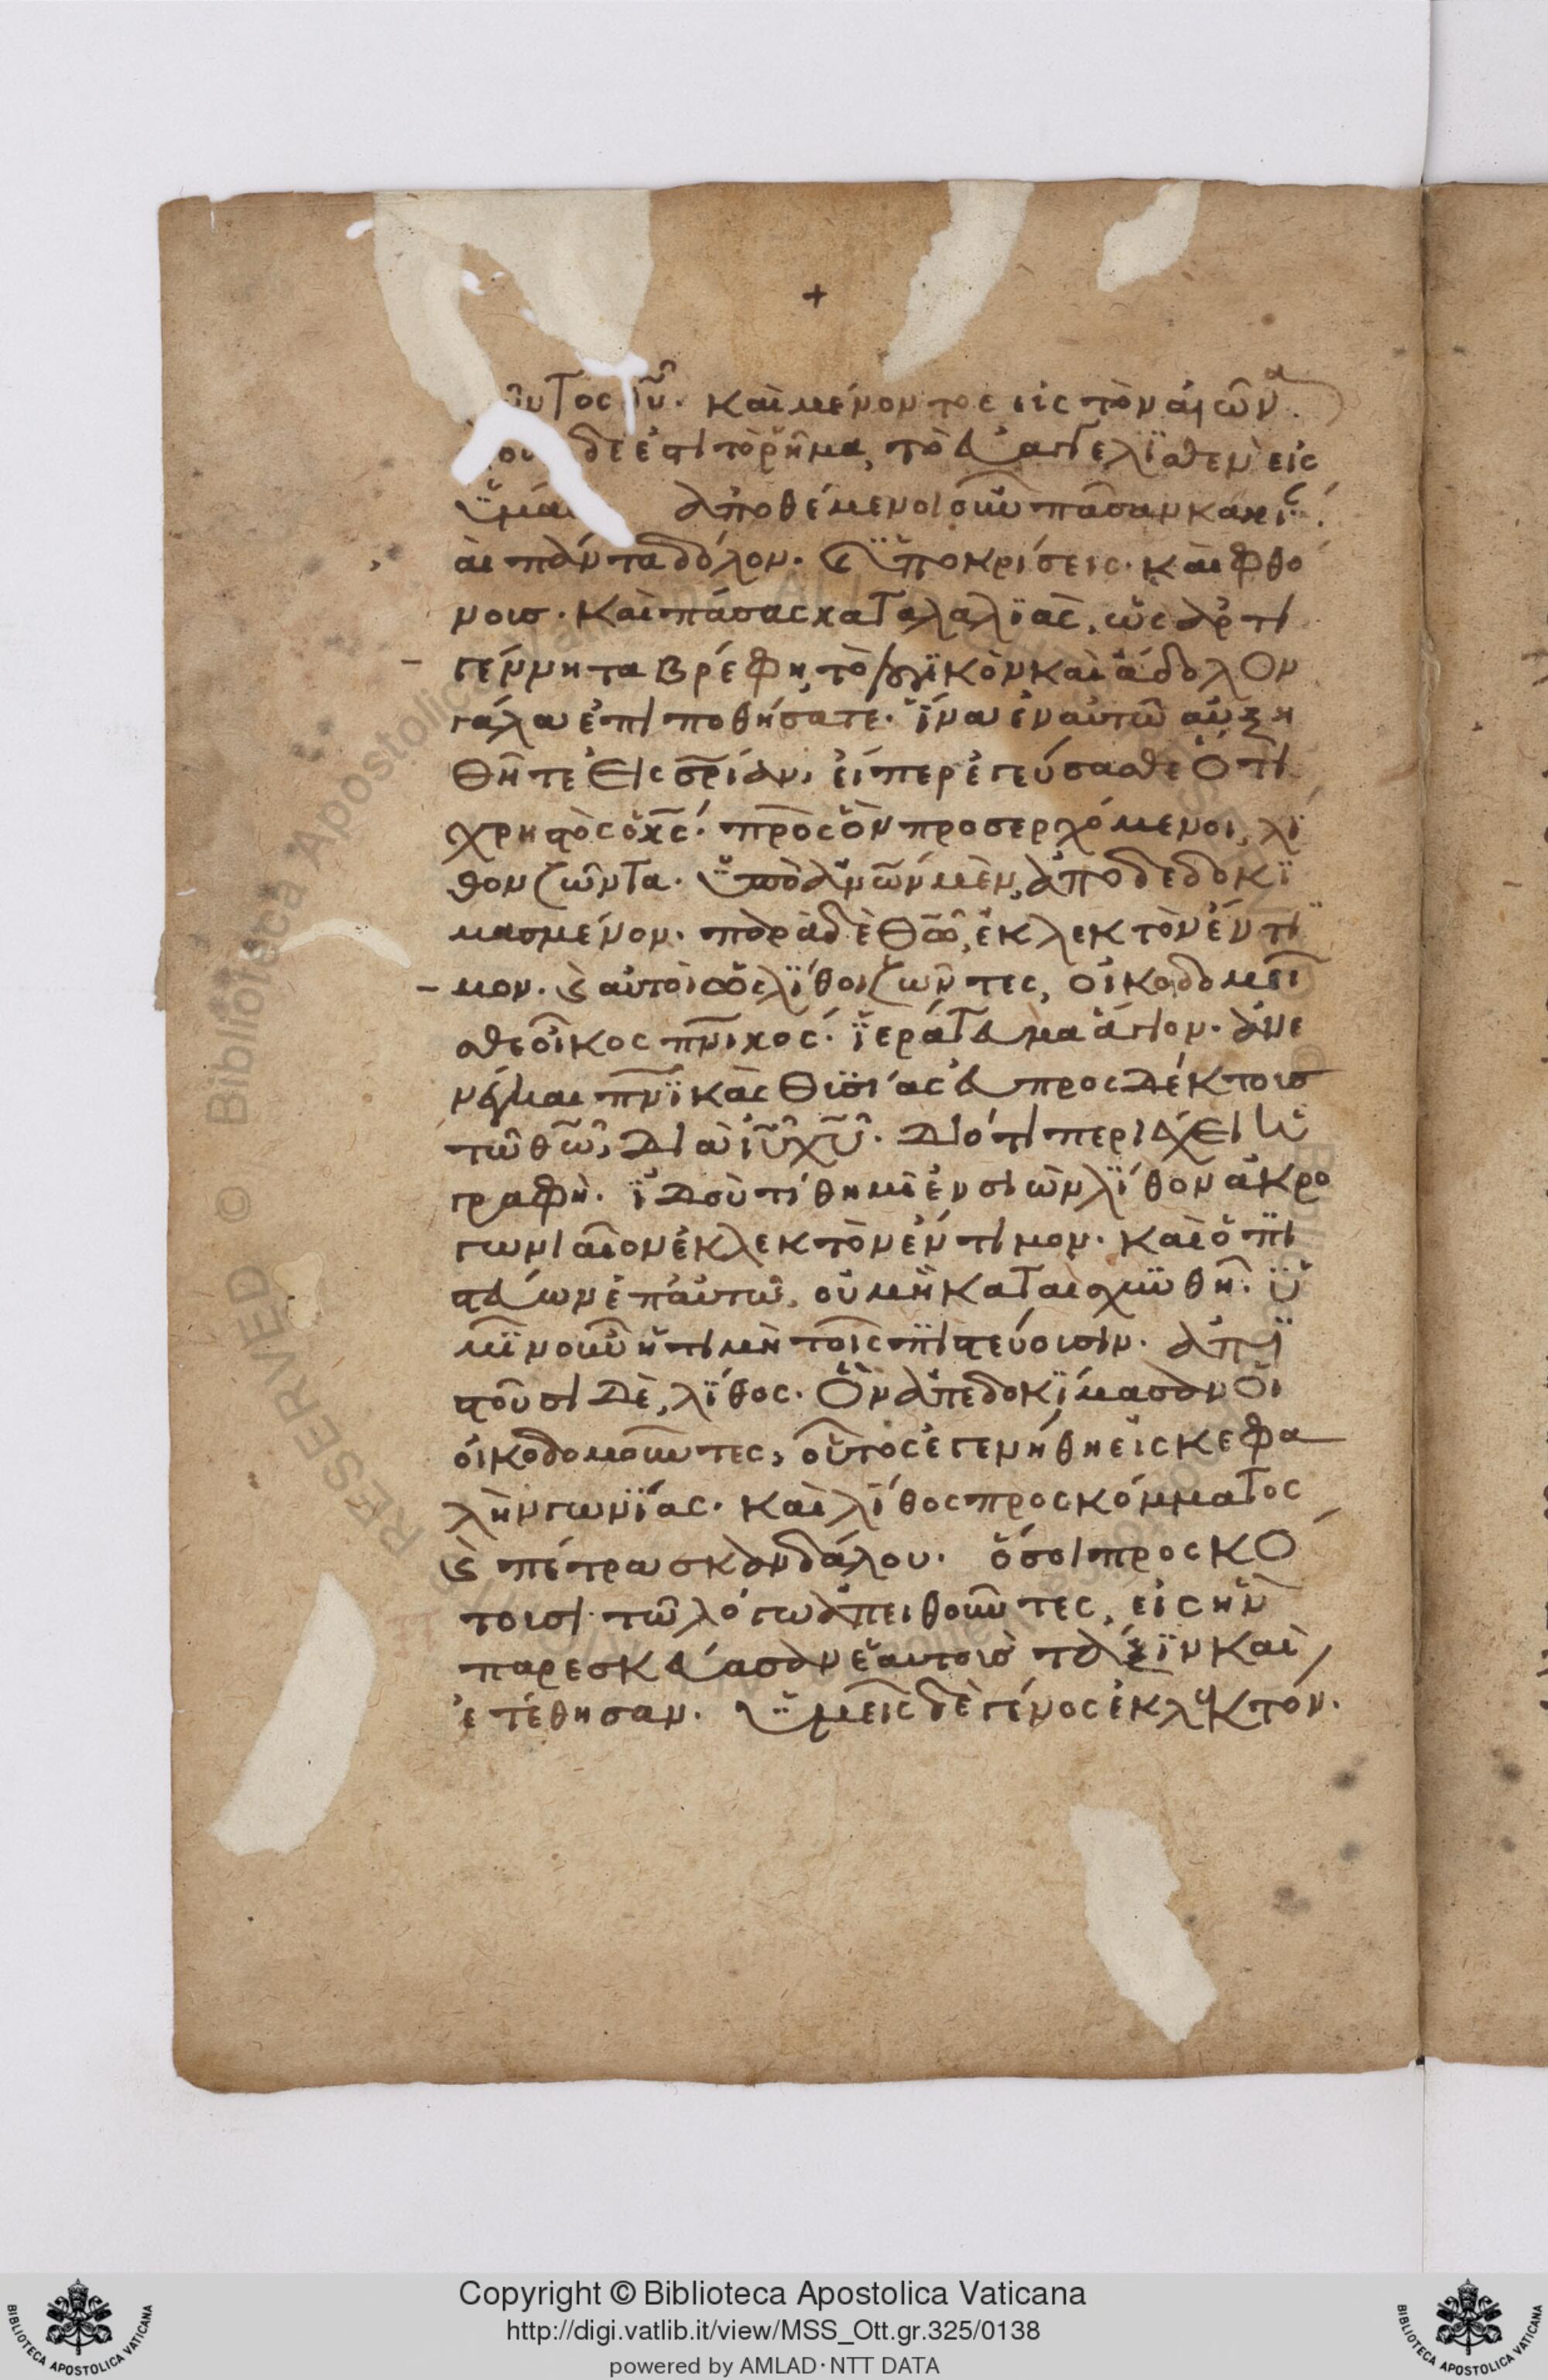 +
ῶντος θῦ. καὶ μένοντος εἰς τὸν αἰῶνα.
δε ἐστι τὸ ῥῆμα, τὸ εὐαγγελϊσθεν εἰς
ὑμᾶς ἀποθέμενοι οὖν πᾶσαν κακί
αι πάντα δόλον. καὶ ὑποκρίσεις. καὶ φθο
νοισ. καὶ πάσας καταλαλϊας, ὡς ἀρτι
γέννητα βρέφη, τὸ λογϊκὸν καὶ ἄδολον
γάλα ἐπιποθήσατε. ἵνα ἐν αὐτῶ αὐξη
θῆτε εἰς σρίαν, εἴπερ ἐγεύσασθε ὅτι
χρηστὸς ὁ χς. πρὸς ὃν προσερχόμενοι, λί
θον ζῶντα. ὑπὸ ἀνων μὲν, ἀποδεδοκϊ
μασμένον. παρὰ δὲ θῶ, ἐκλεκτὸν ἔντι
μον. καὶ αὐτοὶ ὡς λΐθοι ζῶντες, οἰκοδομεῖ
σθε οἶκος πνικος. ἱεράτευμα ἅγιον. ἀνε
νέγκαι πνϊκὰς θυσίας εὐπροσδέκτοισ
τῶ θῶ, διὰ ιυ χυ. Διότι περιέχει ἡ
γραφὴ. ἰδοὺ τίθημι ἐν σιὼν λΐθον ἀκρο
γωνιαῖον ἐκλεκτὸν ἔντιμον. καὶ ὁ πι
στεύων ἐπ' αὐτῶ, οὐ μὴ καταισχυνθῆ. ὑ
μῖν οὖν ἡ τιμὴ τοῖς πιστεύουσιν. ἀπϊ
στοῦσι δὲ, λϊθος. Ὃν ἀπεδοκϊμασαν οἱ
οἰκοδομοῦντες, οὗτος ἐγενήθη εἰς κεφα
λὴν γωνίας. καὶ λΐθος προσκόμματος
καὶ πέτρα σκανδάλου. ὅσοι προσκό
τουσι τῶ λόγω ἀπειθοῦντες, εἰς ἣν
παρεσκεύασαν ἑαυτοισ τάξϊν καὶ
ἐτέθησαν. ὑμεῖς δὲ γένος ἐκλεκτόν.
Copyright © Biblioteca Apostolica Vaticana
http://digi.vatlib.it/view/MSS_Ott.gr.325/0138
powered by AMLAD·NTT DATA